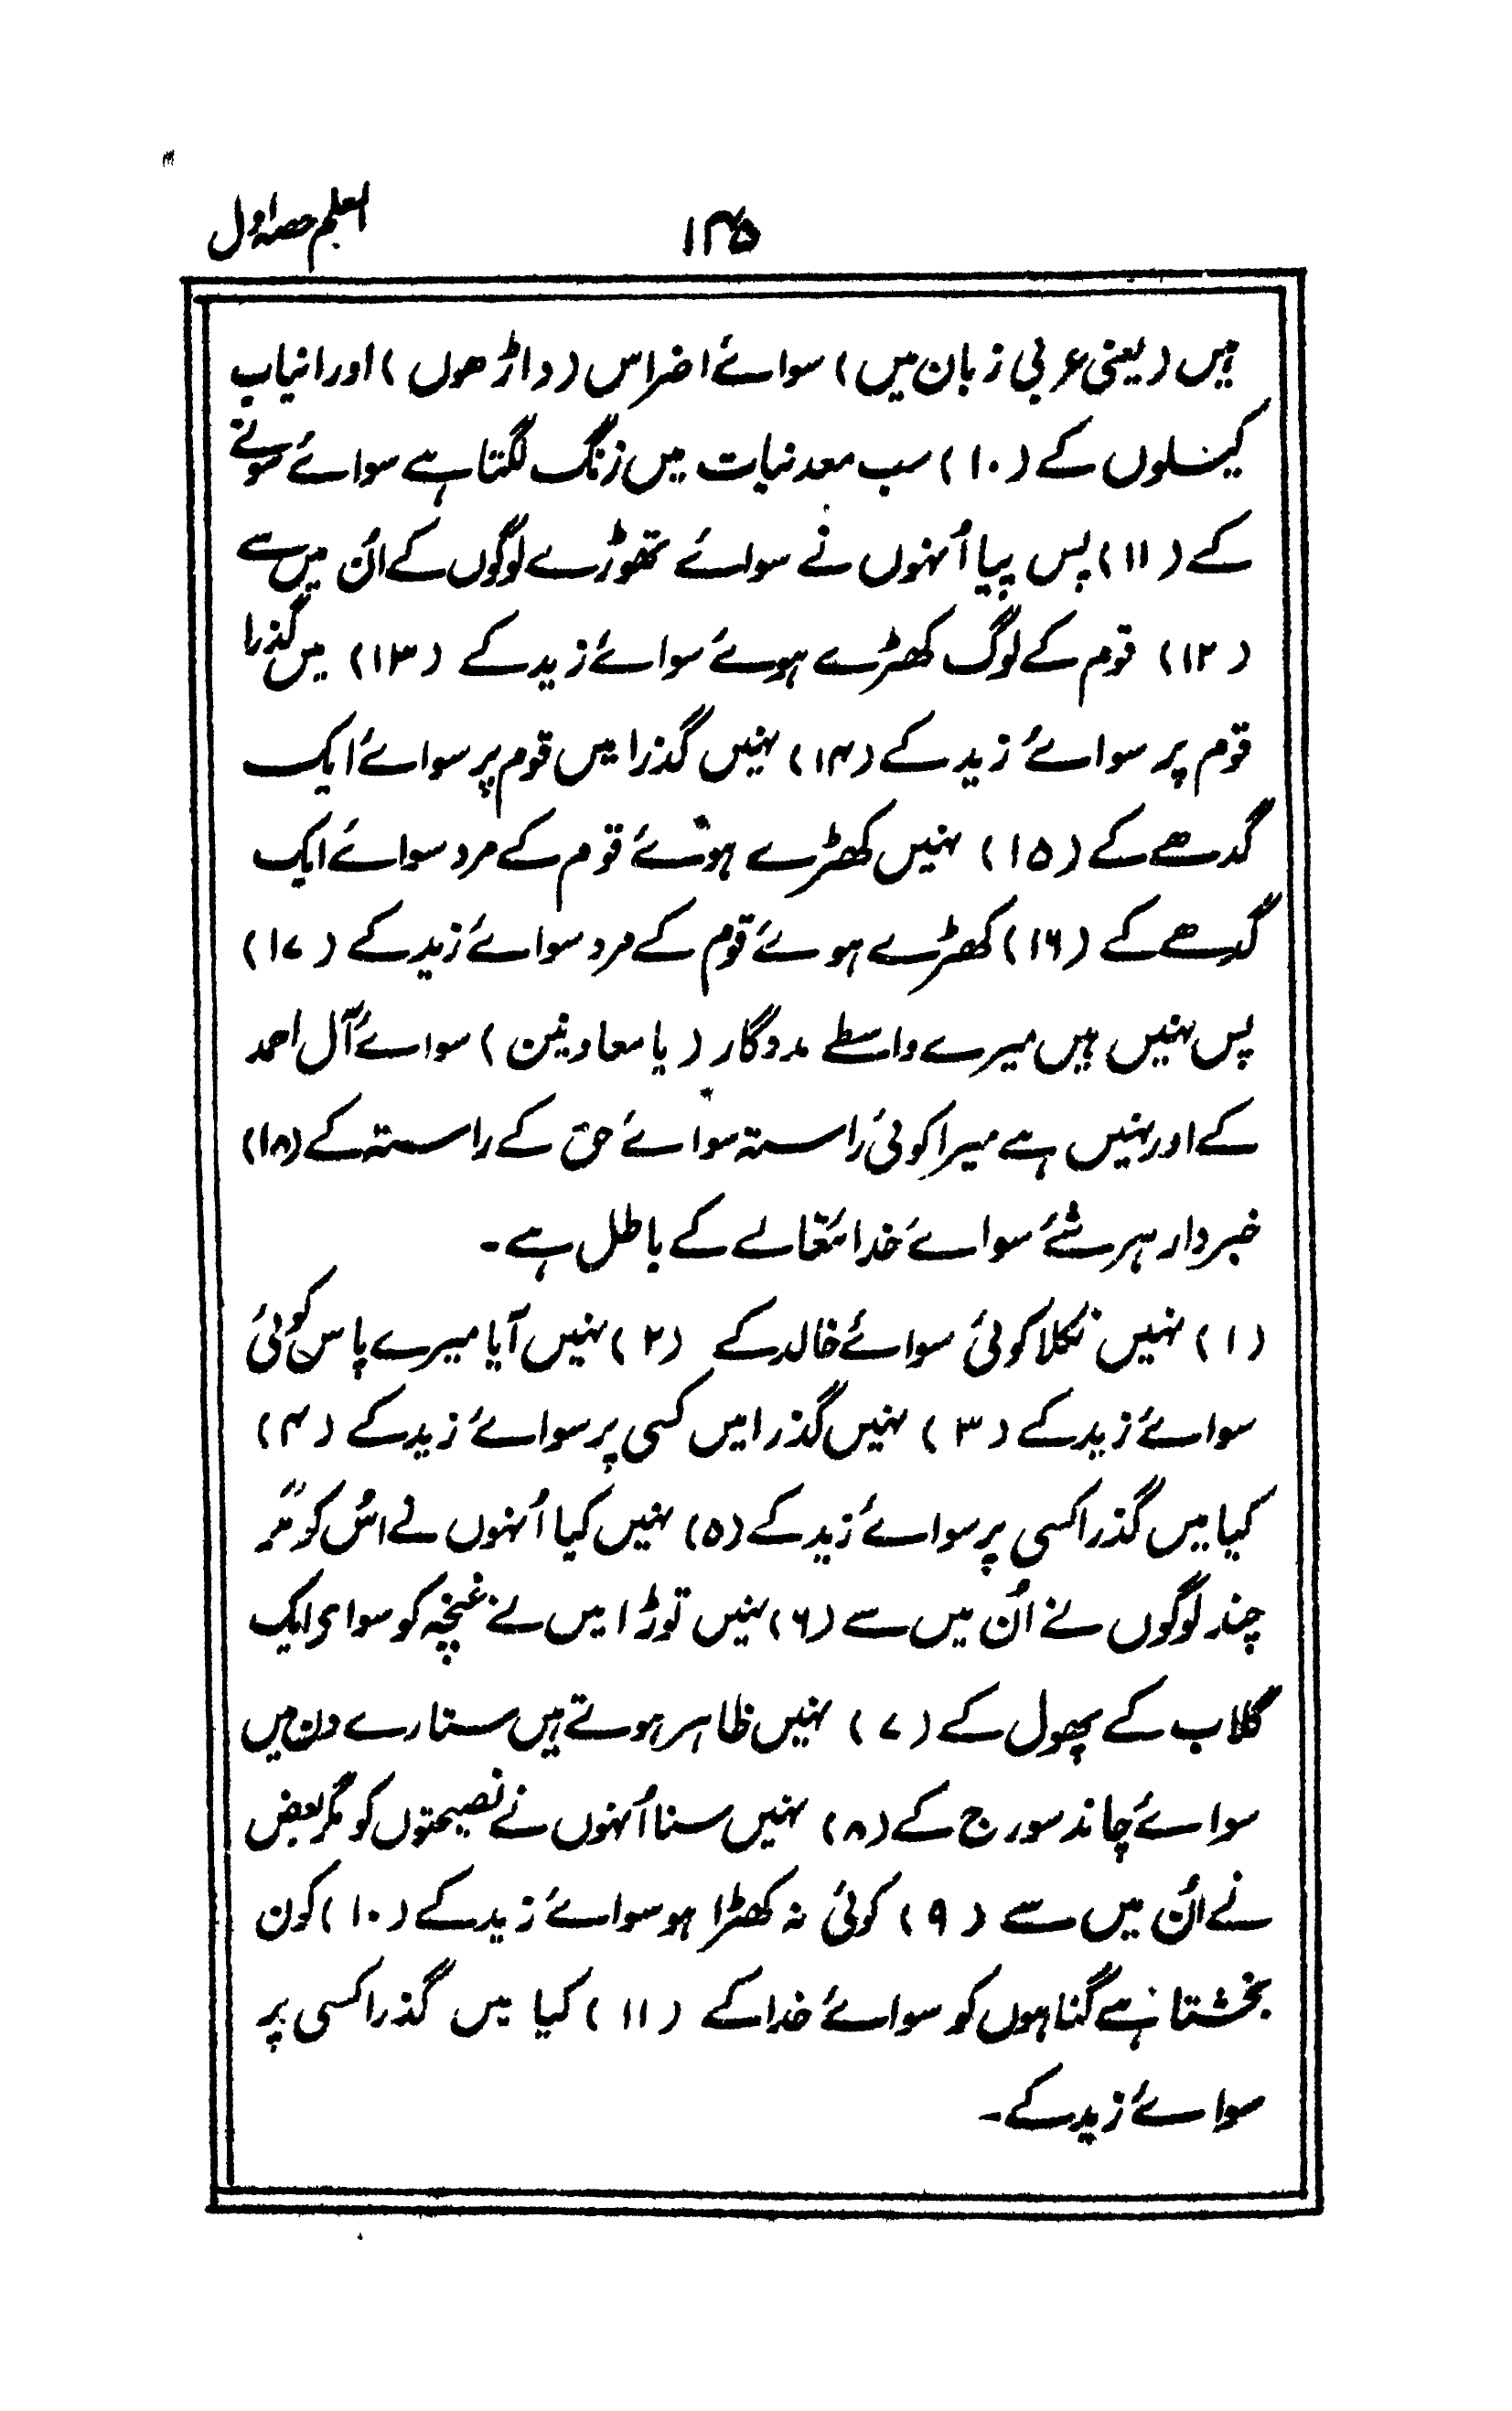 ۱۴۵ المعلم حصہ اول
ہیں (یعنی عربی زبان میں) سوائے اضراس (داڑھوں) اور انیاب
کینلوں کے (۱۰) سب معدنیات میں زنگ لگتا ہے سوائے سونے
کے (۱۱) پس پیا اُنہوں نے سوائے تھوڑے لوگوں کے اُن میں سے
(۱۲) قوم کے لوگ کھڑے ہوئے سوائے زید کے (۱۳) میں گذرا
قوم پر سوائے زید کے (۱۴) نہیں گذرا میں قوم پر سوائے ایک
گدھے کے (۱۵) نہیں کھڑے ہوئے قوم کے مرد سوائے ایک
گدھے کے (۱۶) کھڑے ہوئے قوم کے مرد سوائے زید کے (۱۷)
پس نہیں ہیں میرے واسطے مددگار (یا معاونین) سوائے آل احمد
کے اور نہیں ہے میرا کوئی راستہ سوائے حق کے راستہ کے (۱۸)
خبردار ہر شئے سوائے خدائتعالے کے باطل ہے۔
(۱) نہیں نکلا کوئی سوائے خالد کے (۲) نہیں آیا میرے پاس کوئی
سوائے زید کے (۳) نہیں گذرا میں کسی پر سوائے زید کے (۴)
کیا میں گذرا کسی پر سوائے زید کے (۵) نہیں کیا اُنہوں نے اُس کو مگر
چند لوگوں نے اُن میں سے (۶) نہیں توڑا میں نے غنچہ کو سوای ایک
گلاب کے پھول کے (۷) نہیں ظاہر ہوتے ہیں ستارے دن میں
سوائے چاند سورج کے (۸) نہیں سنا اُنہوں نے نصیحتوں کو مگر بعض
نے اُن میں سے (۹) کوئی نہ کھڑا ہو سوائے زید کے (۱۰) کون
بخشتا ہے گناہوں کو سوائے خدا کے (۱۱) کیا میں گذرا کسی پر
سوائے زید کے۔